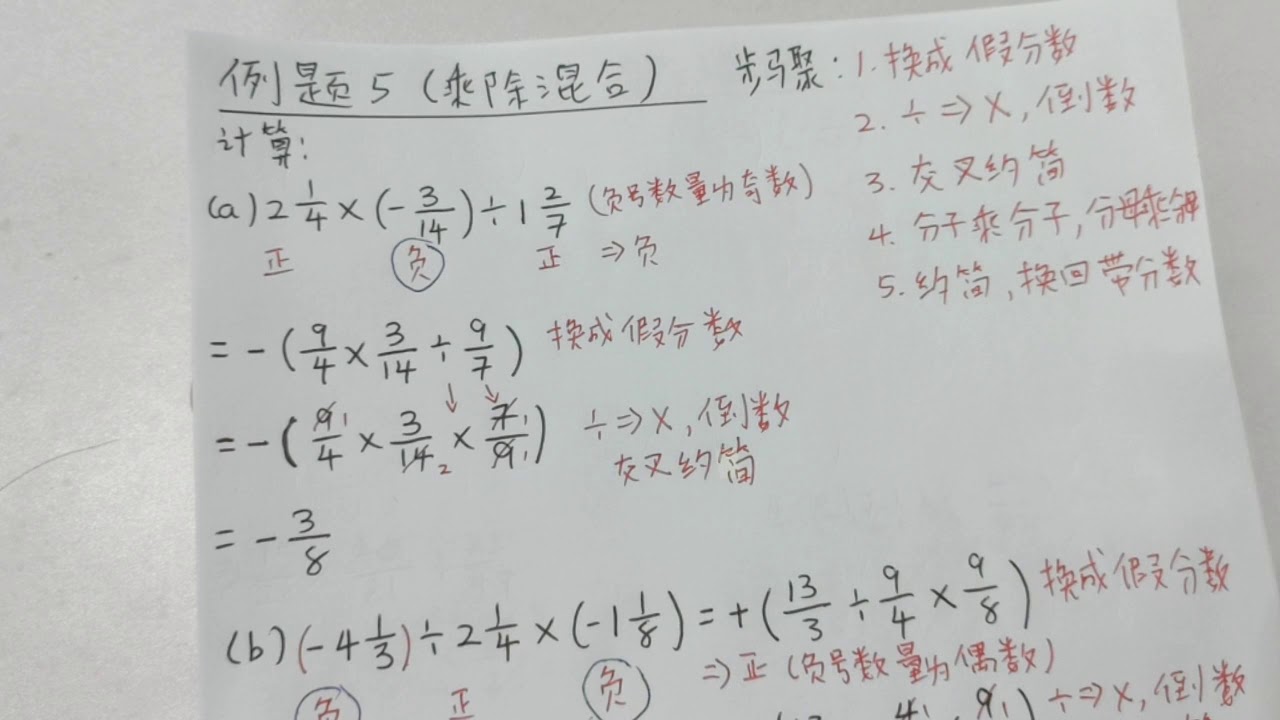 例题5(乘除混合)
步骤:1.换成假分数
2. ÷⇒×,倒数
3. 交叉约简
4. 分子乘分子,分母乘分母
5. 约简,换回带分数
计算:
(a) 2 1/4 × (- 3/14) ÷ 1 2/7 (负号数量为奇数)
正 负 正 ⇒负
= - (9/4 × 3/14 ÷ 9/7) 换成假分数
↓ ↘
= - (9 1/4 × 3/14 2 × 7 1/9 1) ÷⇒×,倒数
交叉约简
= - 3/8
(b) (-4 1/3) ÷ 2 1/4 × (-1 1/8) = + (13/3 ÷ 9/4 × 9/8) 换成假分数
负 正 负 ⇒正(负号数量为偶数)
÷⇒×,倒数